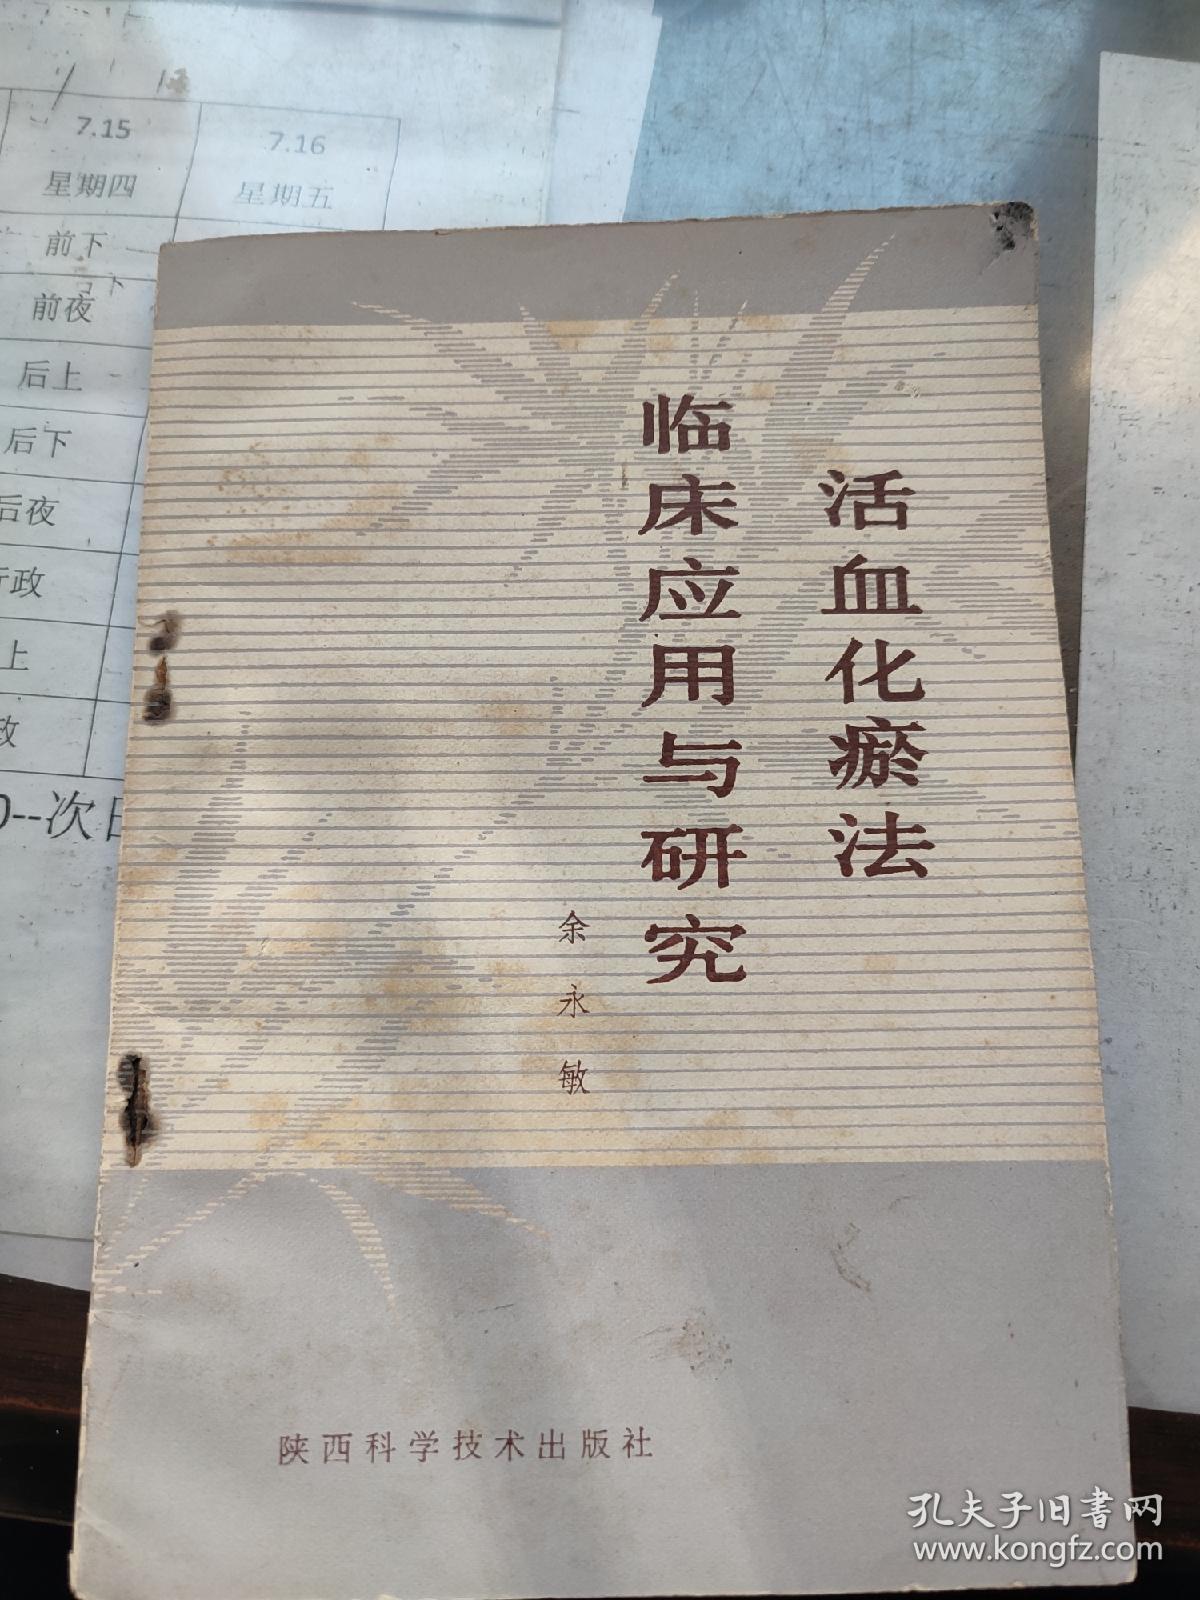 7.15
7.16
星期四
星期五
前下
前夜
后上
后下
后夜
政
上
政
0--次日
活血化瘀法
临床应用与研究
余永敏
陕西科学技术出版社
孔夫子旧书网
www.kongfz.com